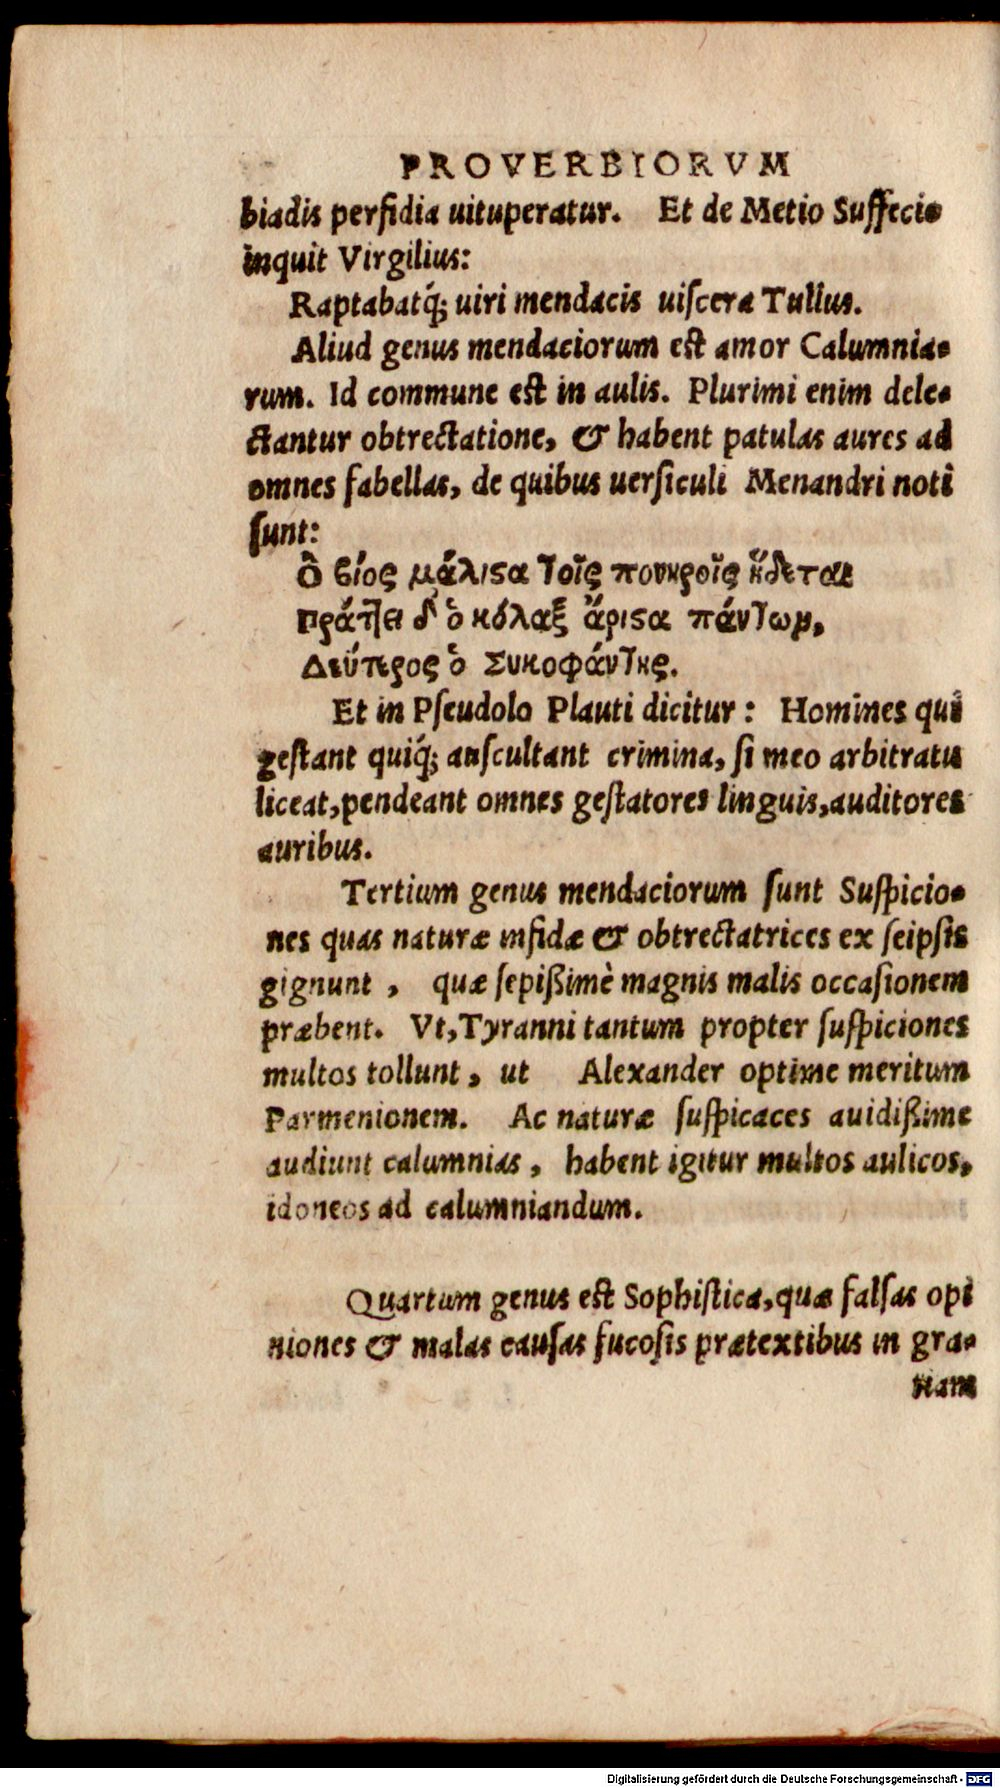 PROVERBIORVM
biadis perfidia uituperatur. Et de Metio Suffecio
inquit Virgilius:
Raptabatq́; uiri mendacis uiſcera Tullus.
Aliud genus mendaciorum eſt amor Calumnia-
rum. Id commune eſt in aulis. Plurimi enim dele-
ctantur obtrectatione, & habent patulas aures ad
omnes fabellas, de quibus uerſiculi Menandri noti
ſunt:
Ὁ βίος μάλιϛα τοῖς πονηροῖς ἥδεται
πράττει δ' ὁ κόλαξ ἄριϛα πάντωμ,
Δεύτερος ὁ Συκοφάντης.
Et in Pſeudolo Plauti dicitur: Homines qui
geſtant quiq́; auſcultant crimina, ſi meo arbitratu
liceat, pendeant omnes geſtatores linguis, auditores
auribus.
Tertium genus mendaciorum ſunt Suſpicio-
nes quas naturæ infidæ & obtrectatrices ex ſeipſis
gignunt, quæ ſepißimè magnis malis occaſionem
præbent. Vt, Tyranni tantum propter ſuſpiciones
multos tollunt, ut Alexander optime meritum
Parmenionem. Ac naturæ ſuſpicaces auidißime
audiunt calumnias, habent igitur multos aulicos,
idoneos ad calumniandum.
Quartum genus eſt Sophiſtica, quæ falſas opi
niones & malas cauſas fucoſis prætextibus in gra-
tiam
Digitalisierung gefördert durch die Deutsche Forschungsgemeinschaft - DFG